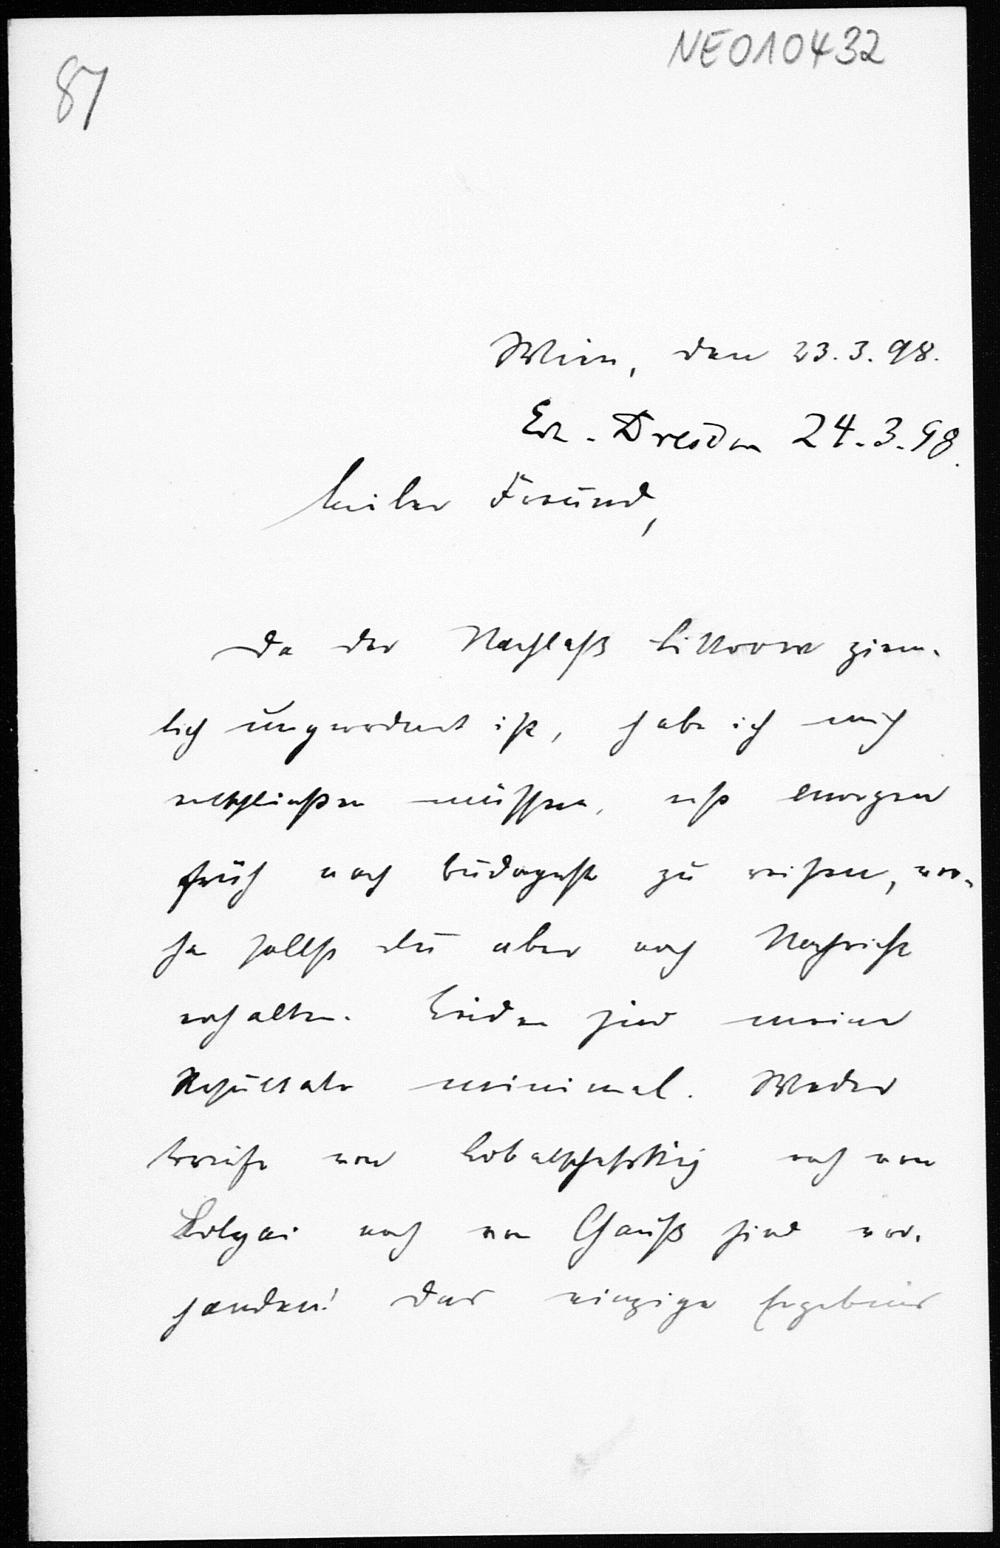 NEO10432
87
Wien, den 23.3.98.
Erh. Dresden 24.3.98.
Lieber Freund,
Da der Nachlaß Littrow ziem-
lich ungeordnet ist, habe ich mich
entschließen müssen, erst morgen
früh nach Budapest zu reisen, vor-
her sollst du aber noch Nachricht
erhalten. Leider sind meine
Resultate minimal. Weder
Briefe von Lobatschefskij noch von
Bolyai noch von Gauß sind vor-
handen! Das einzige Ergebnis